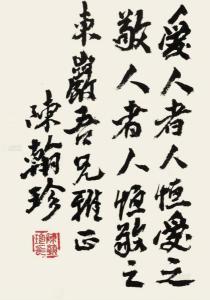 愛人者人恒愛之
敬人者人恒敬之
東巖吾兄雅正
陳翰珍